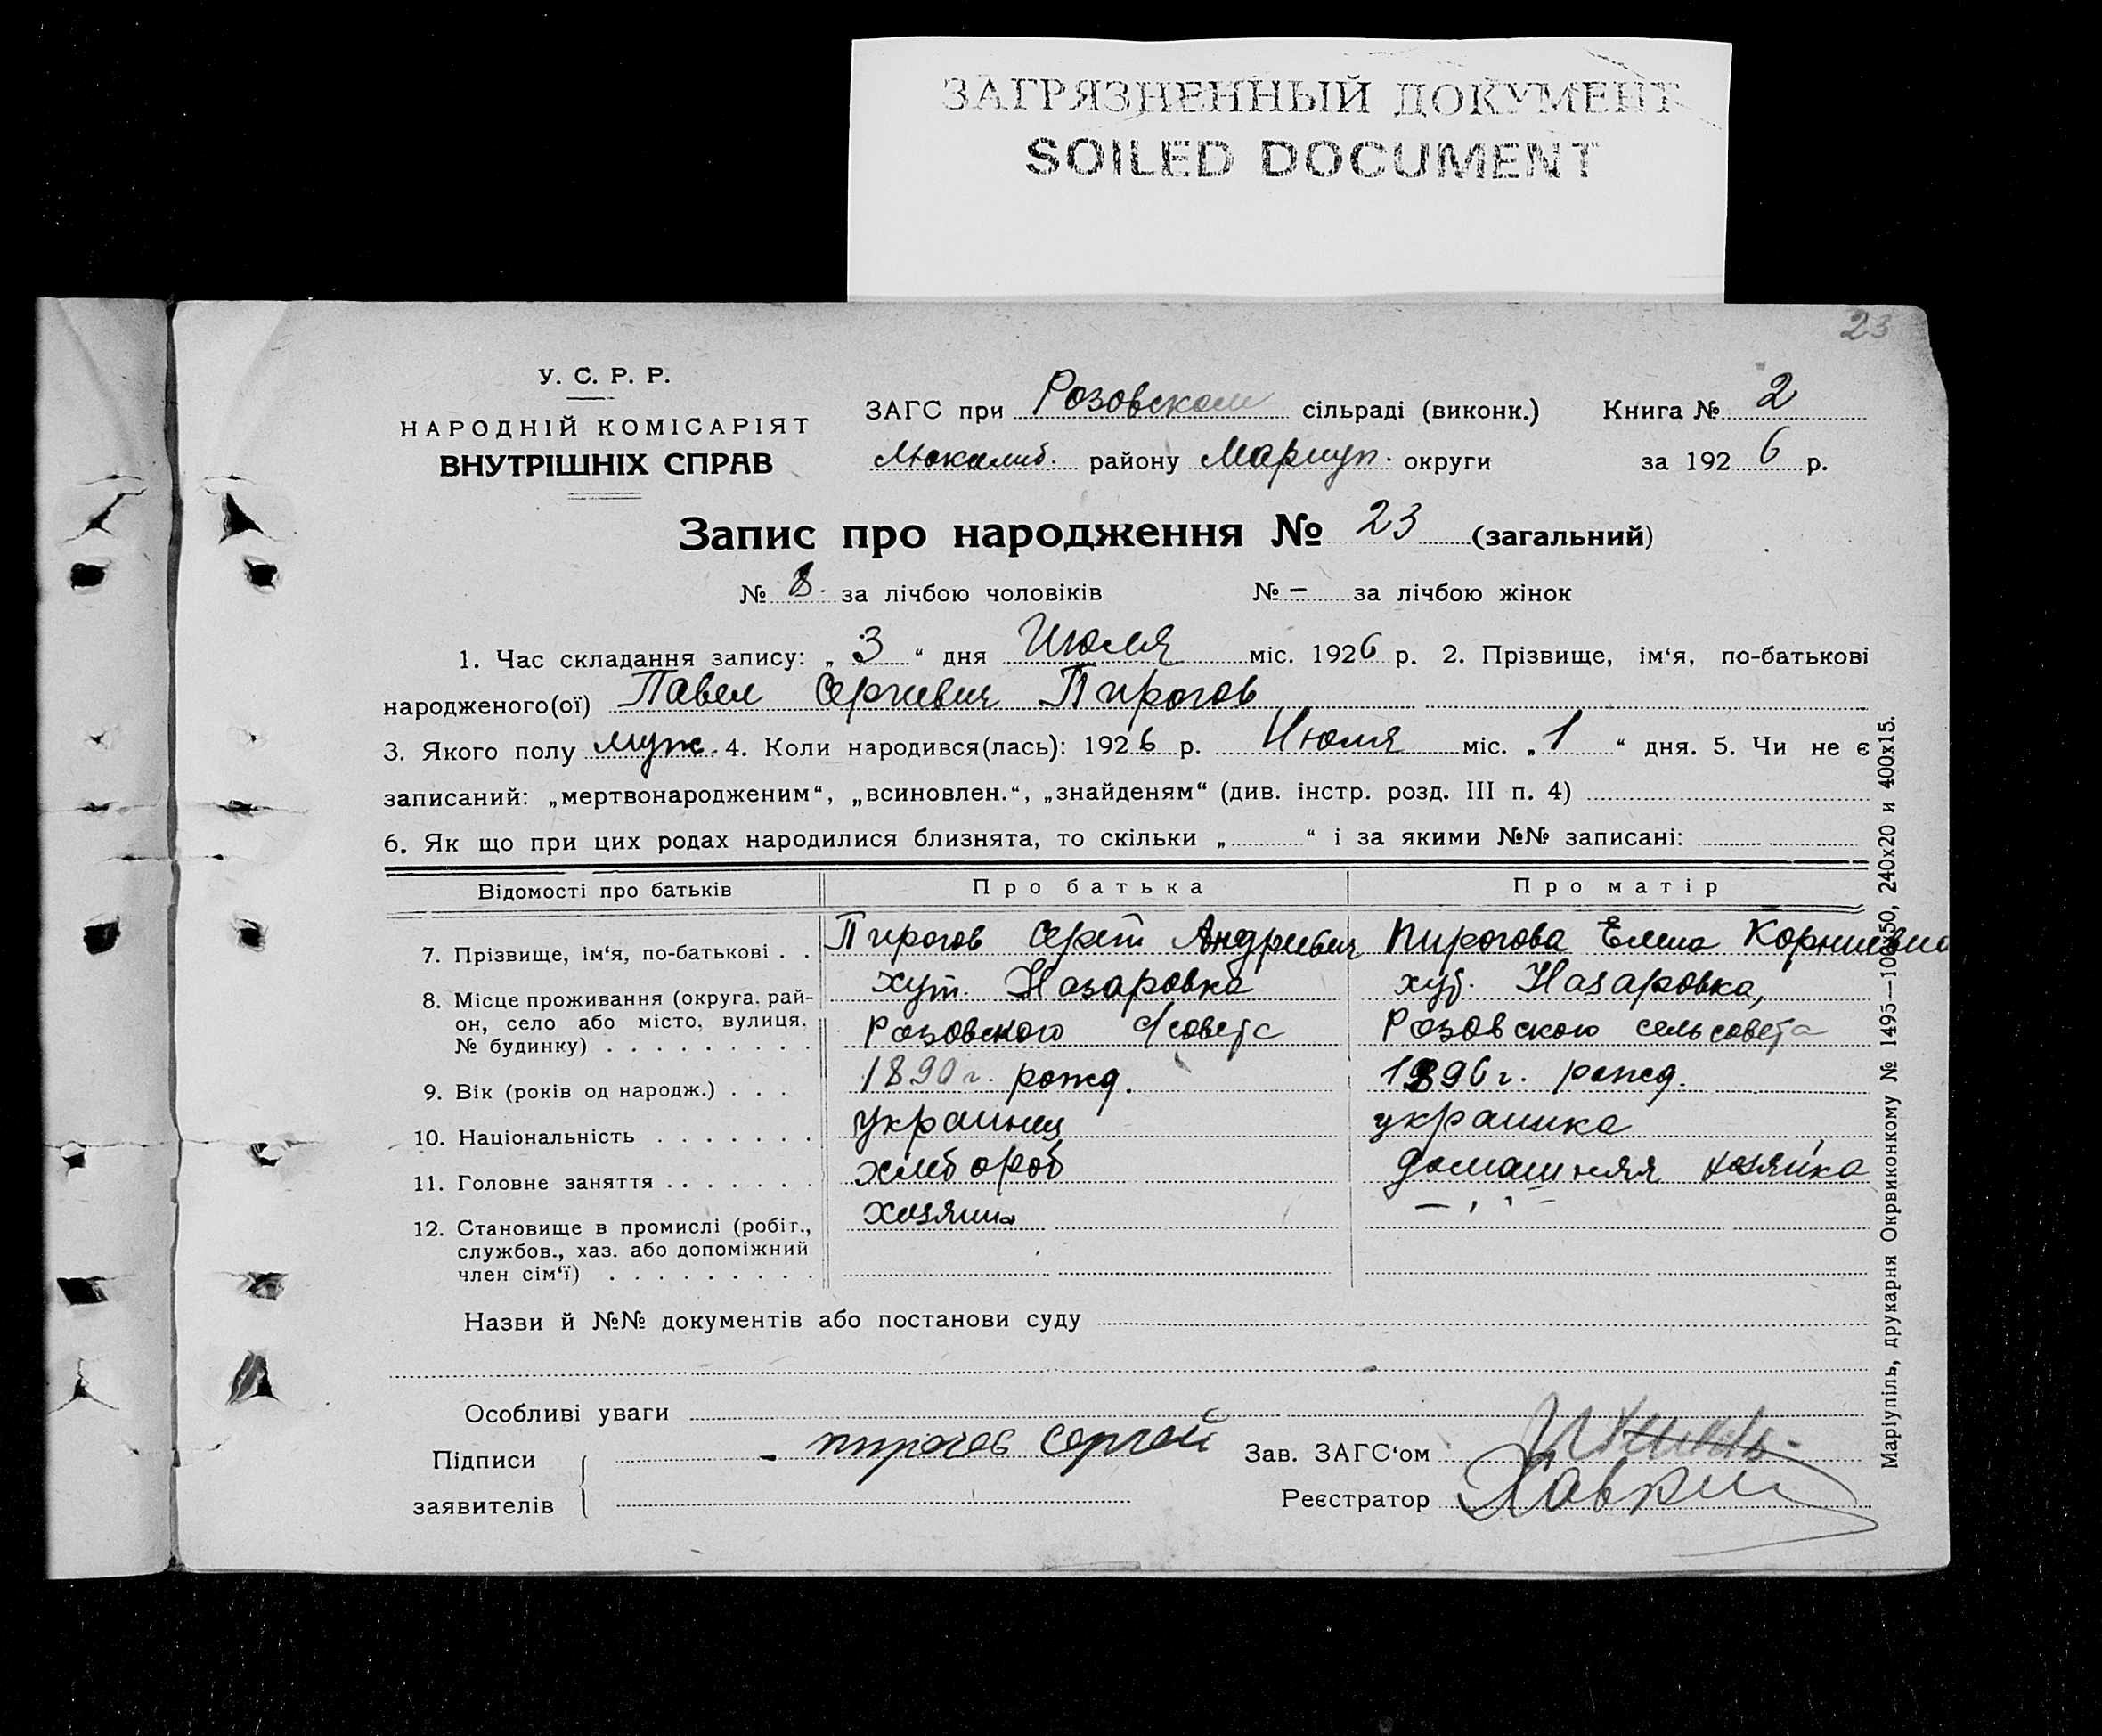 ЗАГРЯЗНЕННЫЙ ДОКУМЕНТ
SOILED DOCUMENT
23
У. С. Р. Р.
НАРОДНІЙ КОМІСАРІЯТ
ВНУТРІШНІХ СПРАВ
ЗАГС при Розовском сільраді (виконк.) Книга № 2
району Мариуп. округи за 1926 р.
Запис про народження № 23 (загальний)
№ 8. за лічбою чоловіків № – за лічбою жінок
1. Час складання запису: „3“ дня Июля міс. 1926 р. 2. Прізвище, ім‘я, по-батькові
народженого(ої) Павел Сергиевич Пирогов
3. Якого полу муж. 4. Коли народився(лась): 1926 р. Июля міс. „1“ дня. 5. Чи не є
записаний: „мертвонародженим“, „всиновлен.“, „знайденям“ (див. інстр. розд. III п. 4)
6. Як що при цих родах народилися близнята, то скільки „ “ і за якими №№ записані:
Відомості про батьків Про батька Про матір
7. Прізвище, ім‘я, по-батькові . . Пирогов Андриевич Пирогова Елена
8. Місце проживання (округа, рай- хут. Назаровка хут. Назаровка,
он, село або місто, вулиця, Розовского с/совета Розовского сельсовета
№ будинку) . . . . . . . . .
9. Вік (років од народж.) . . . 1890 г. рожд. 1896 г. рожд.
10. Національність . . . . . . . украинец украинка
11. Головне заняття . . . . . . . хлебороб домашняя хозяйка
12. Становище в промислі (робіт., хозяин – , , –
службов., хаз. або допоміжний
член сім‘ї) . . . . . . . . .
Назви й №№ документів або постанови суду
Особливі уваги
Підписи пирогов Сергей Зав. ЗАГС‘ом
заявителів Реєстратор
Маріупіль, друкарня Окрвиконкому № 1495—100х50, 240х20 и 400х15.